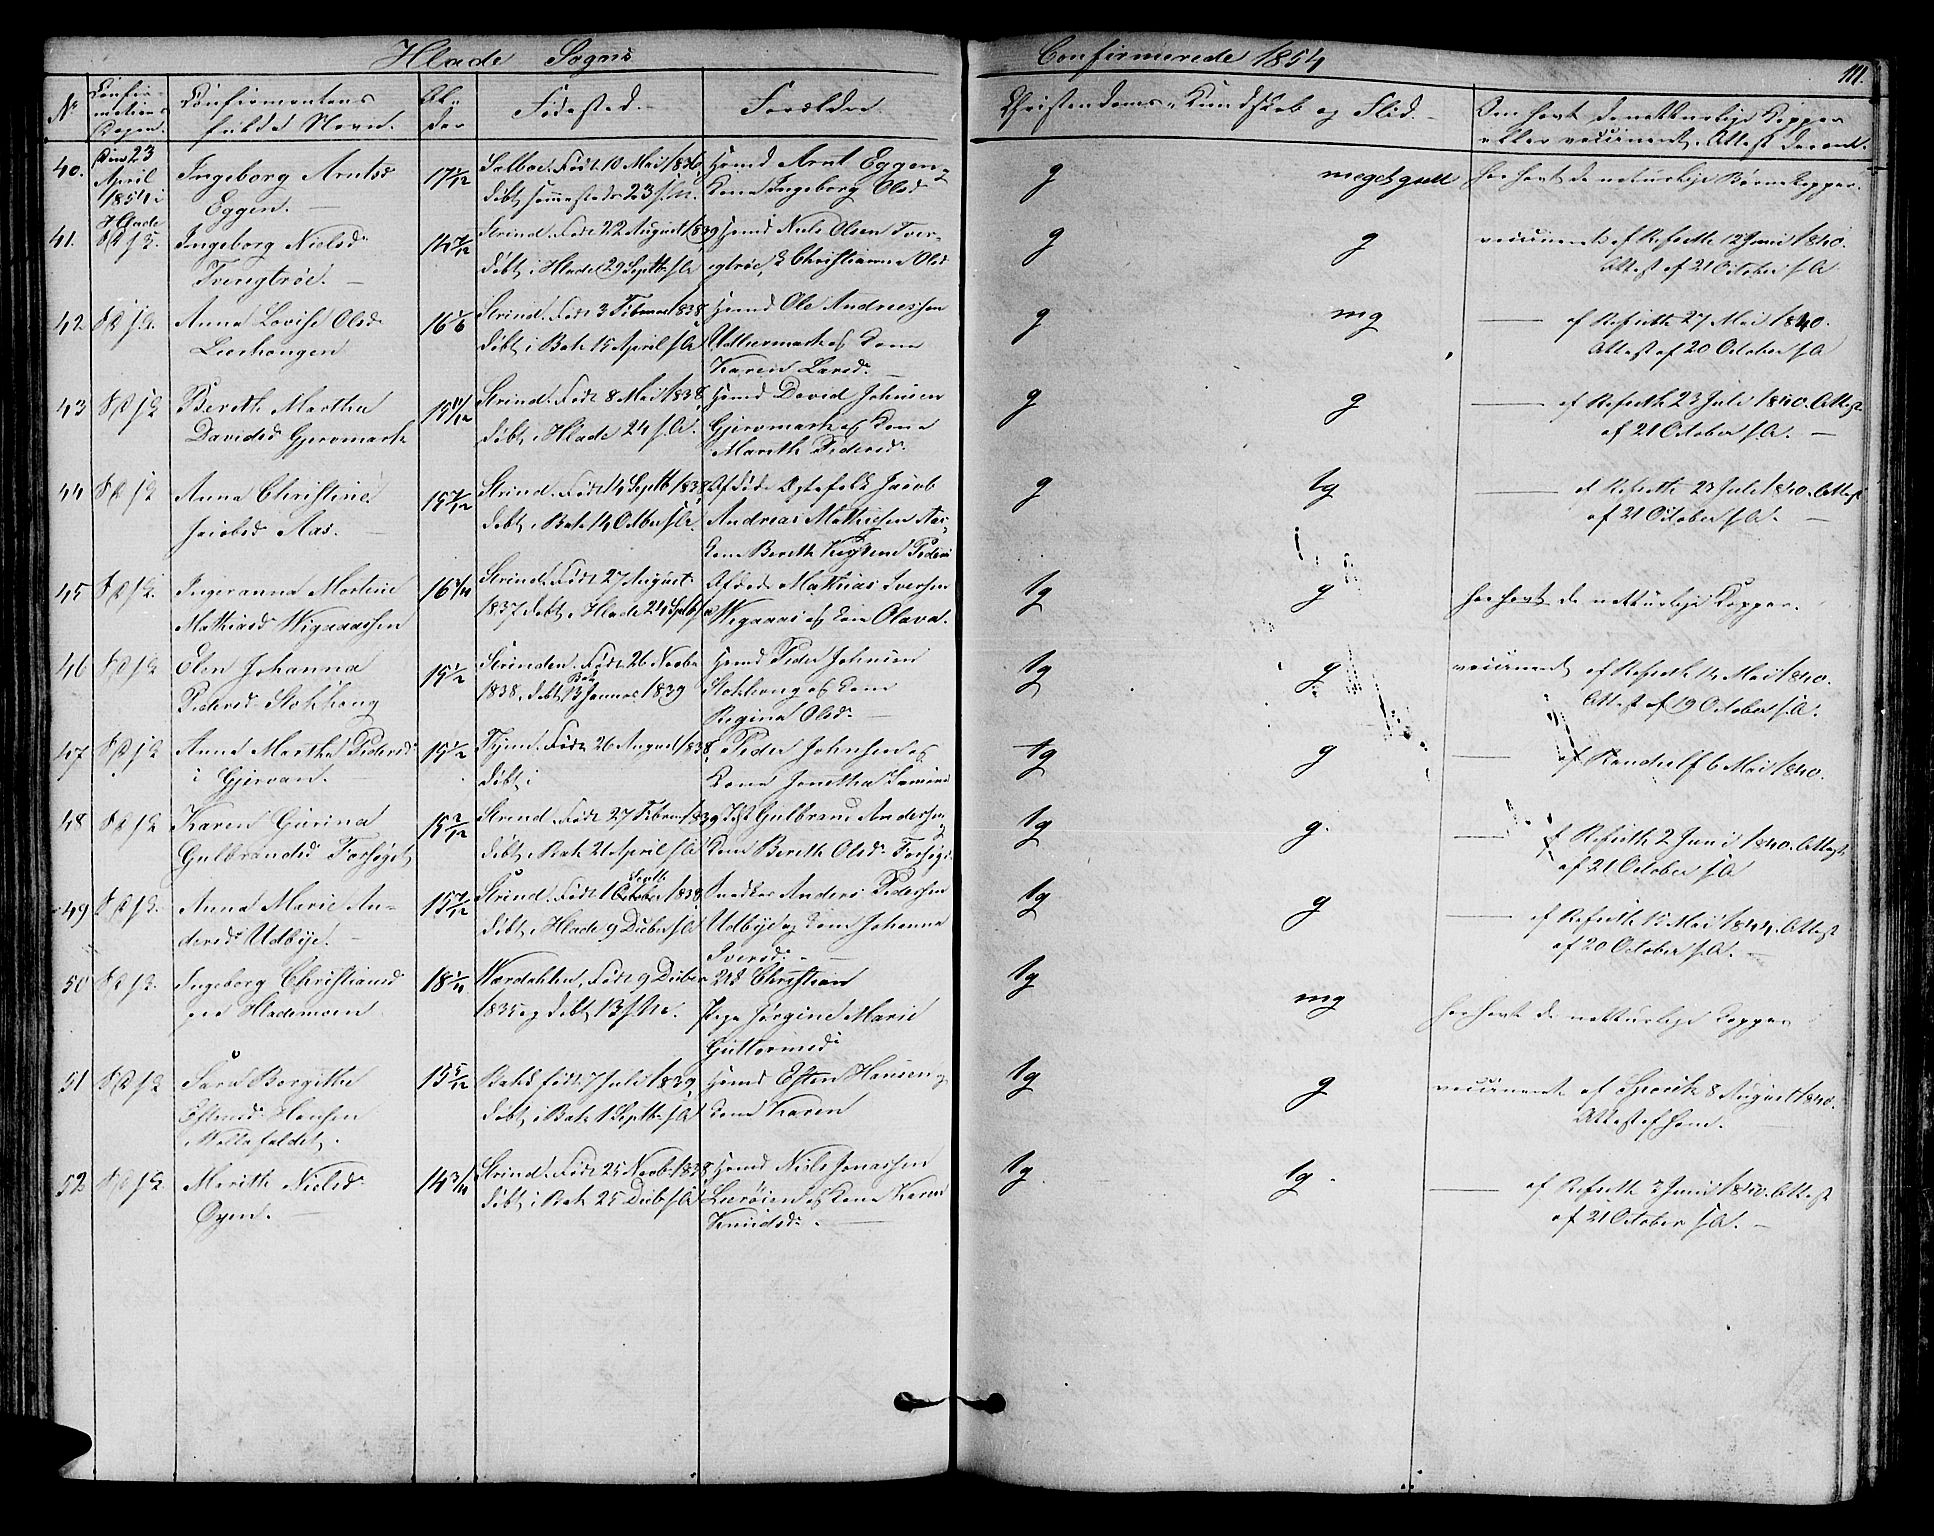 Hlade Sogns
Confirmerede 1854
111.
No
Confirmations Dagen.
Confirmantens fulde Navn.
Alder
Fødested.
Forældre.
Christendoms-Kundskab og Flid.
Om havt de naturlige Kopper eller vaccineret, Attest derom.
40.
den 23
April
1854 i
Hlade
Ingeborg Arntsd
Eggen.
17 1/12
Selboe. Født 10 Mai 1836,
døbt sammesteds 23 s.M.
Hmd Arnt Eggen &
Kone Ingeborg Olsd
g
meget godt
har havt de naturlige Børnekopper.
41.
Ingeborg Nielsd
14 7/12
Strind. Født 22 August 1839
døbt i Hlade 29 Septb s.A
Hmd Niels Olsen
& Christianna Olsd
g
g
vaccineret af Refseth 12 Juni 1840.
Attest af 21 October s.A
42
Anna Lovise Olsd
Leerhougen
16 1/6
Strind. Født 3 Februar 1838
døbt i Bak 15 April s.A
Hmd Ole Andreassen
Kone
Karen Larsd.
g
mg
— af Refseth 27 Mai 1840.
Attest af 20 October s.A
43
Bereth Martha
Davidsd Gjervmark
15 11/12
Strind. Født 8 Mai 1838,
døbt i Hlade 24 s.A.
Hmd David Johnsen
Gjervmark og Kone
Mareth Pedersd.
g
g
— af Refseth 23 Juli 1840. Attest
af 21 October s.A. —
44
Anna Christine
Jacobsd Aas. —
15 7/12
Strind. Født 14 Septb 1838
døbt i Bak 14 Octbr s.A.
Afdøde Ægtefolk Jacob
Andreas Mathiesen Aas
Kone Bereth Pedersd
g
tg
— af Refseth 23 Juli 1840. Attest
af 21 October s.A. —
45
Ingeranna Martine
Mathiasd Wigaassen
16
Strind. Født 27 August
1837 døbt i Hlade 24 Septb s.A
Afdøde Mathias Iversen
Wigaas og Kone Olava.
tg
g
har havt de naturlige Kopper.
46
Elen Johanna
Pedersd Stokhoug
15 1/2
Strinden. Født 26 Novbr
1838, døbt Bak 13 Januar 1839
Hmd Peder Johnsen
Stokhoug og Kone
Regina Olsd. —
tg
g
vaccineret af Refseth 14 Mai 1840.
Attest af 19 October s.A.
47
Anne Martha Pedersd
i Gjervan. —
15 7/12
Født 26 August 1838,
døbt i
Peder Johnsen og
Kone Jonetha
tg
g
— af Randulf 6 Mai 1840.
48
Karen Gurina
Gulbrandsd Forsøget
15 2/12
Strind. Født 27 Februar 1839
døbt i Bak 21 April s.A
Gulbrand Andersen
Kone Bereth Olsd. Forsøget
tg
g.
— af Refseth 2 Juni 1840. Attest
af 21 October s.A
49
Anna Marie An-
dersd Udbye. —
15 7/12
Strind. Født 1 October Septb 1838
døbt i Hlade 9 Decbr s.A
Anders Pedersen
Udbye og Kone Johanna
Iversd. —
tg
g
— af Refseth 15 Mai 1844. Attest
af 20 October s.A. —
50
Ingeborg Christiansd
Hlademoen
18
Værdahlen, Født 9 Decbr
1835 og døbt 13 s.M.
Christian
Pige Jørgine Marie
Guttormsd
tg
mg
har havt de naturlige Kopper
51
Sara Bergithe
Estensd Hansen
15 5/12
Bakd født 7 Juli 1839,
døbt i Bak 1 Septb s.A
Hmd Esten Hansen &
Kone Karen
tg
g
vaccineret af 8 August 1840.
Attest af ham. —
52
Mareth Nielsd
Øyen. —
14
Strind. Født 25 Novb 1838
døbt i Bak 25 Decb s.A
Hmd Niels Jonassen
Leerøien og Kone Karen
Knudsd. —
tg.
tg.
— af Refseth 3 Juni 1840. Attest
af 21 October s.A. —